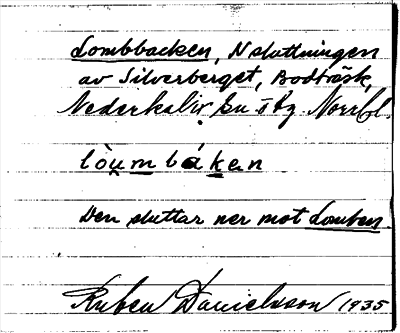 Lombbacken, N sluttningen
av Silverberget, Bodträsk,
Nederkalix sn o tg. Norrb l.
lòu̯m bákan
Den sluttar ner mot Lomben.
Ruben Danielsson 1935